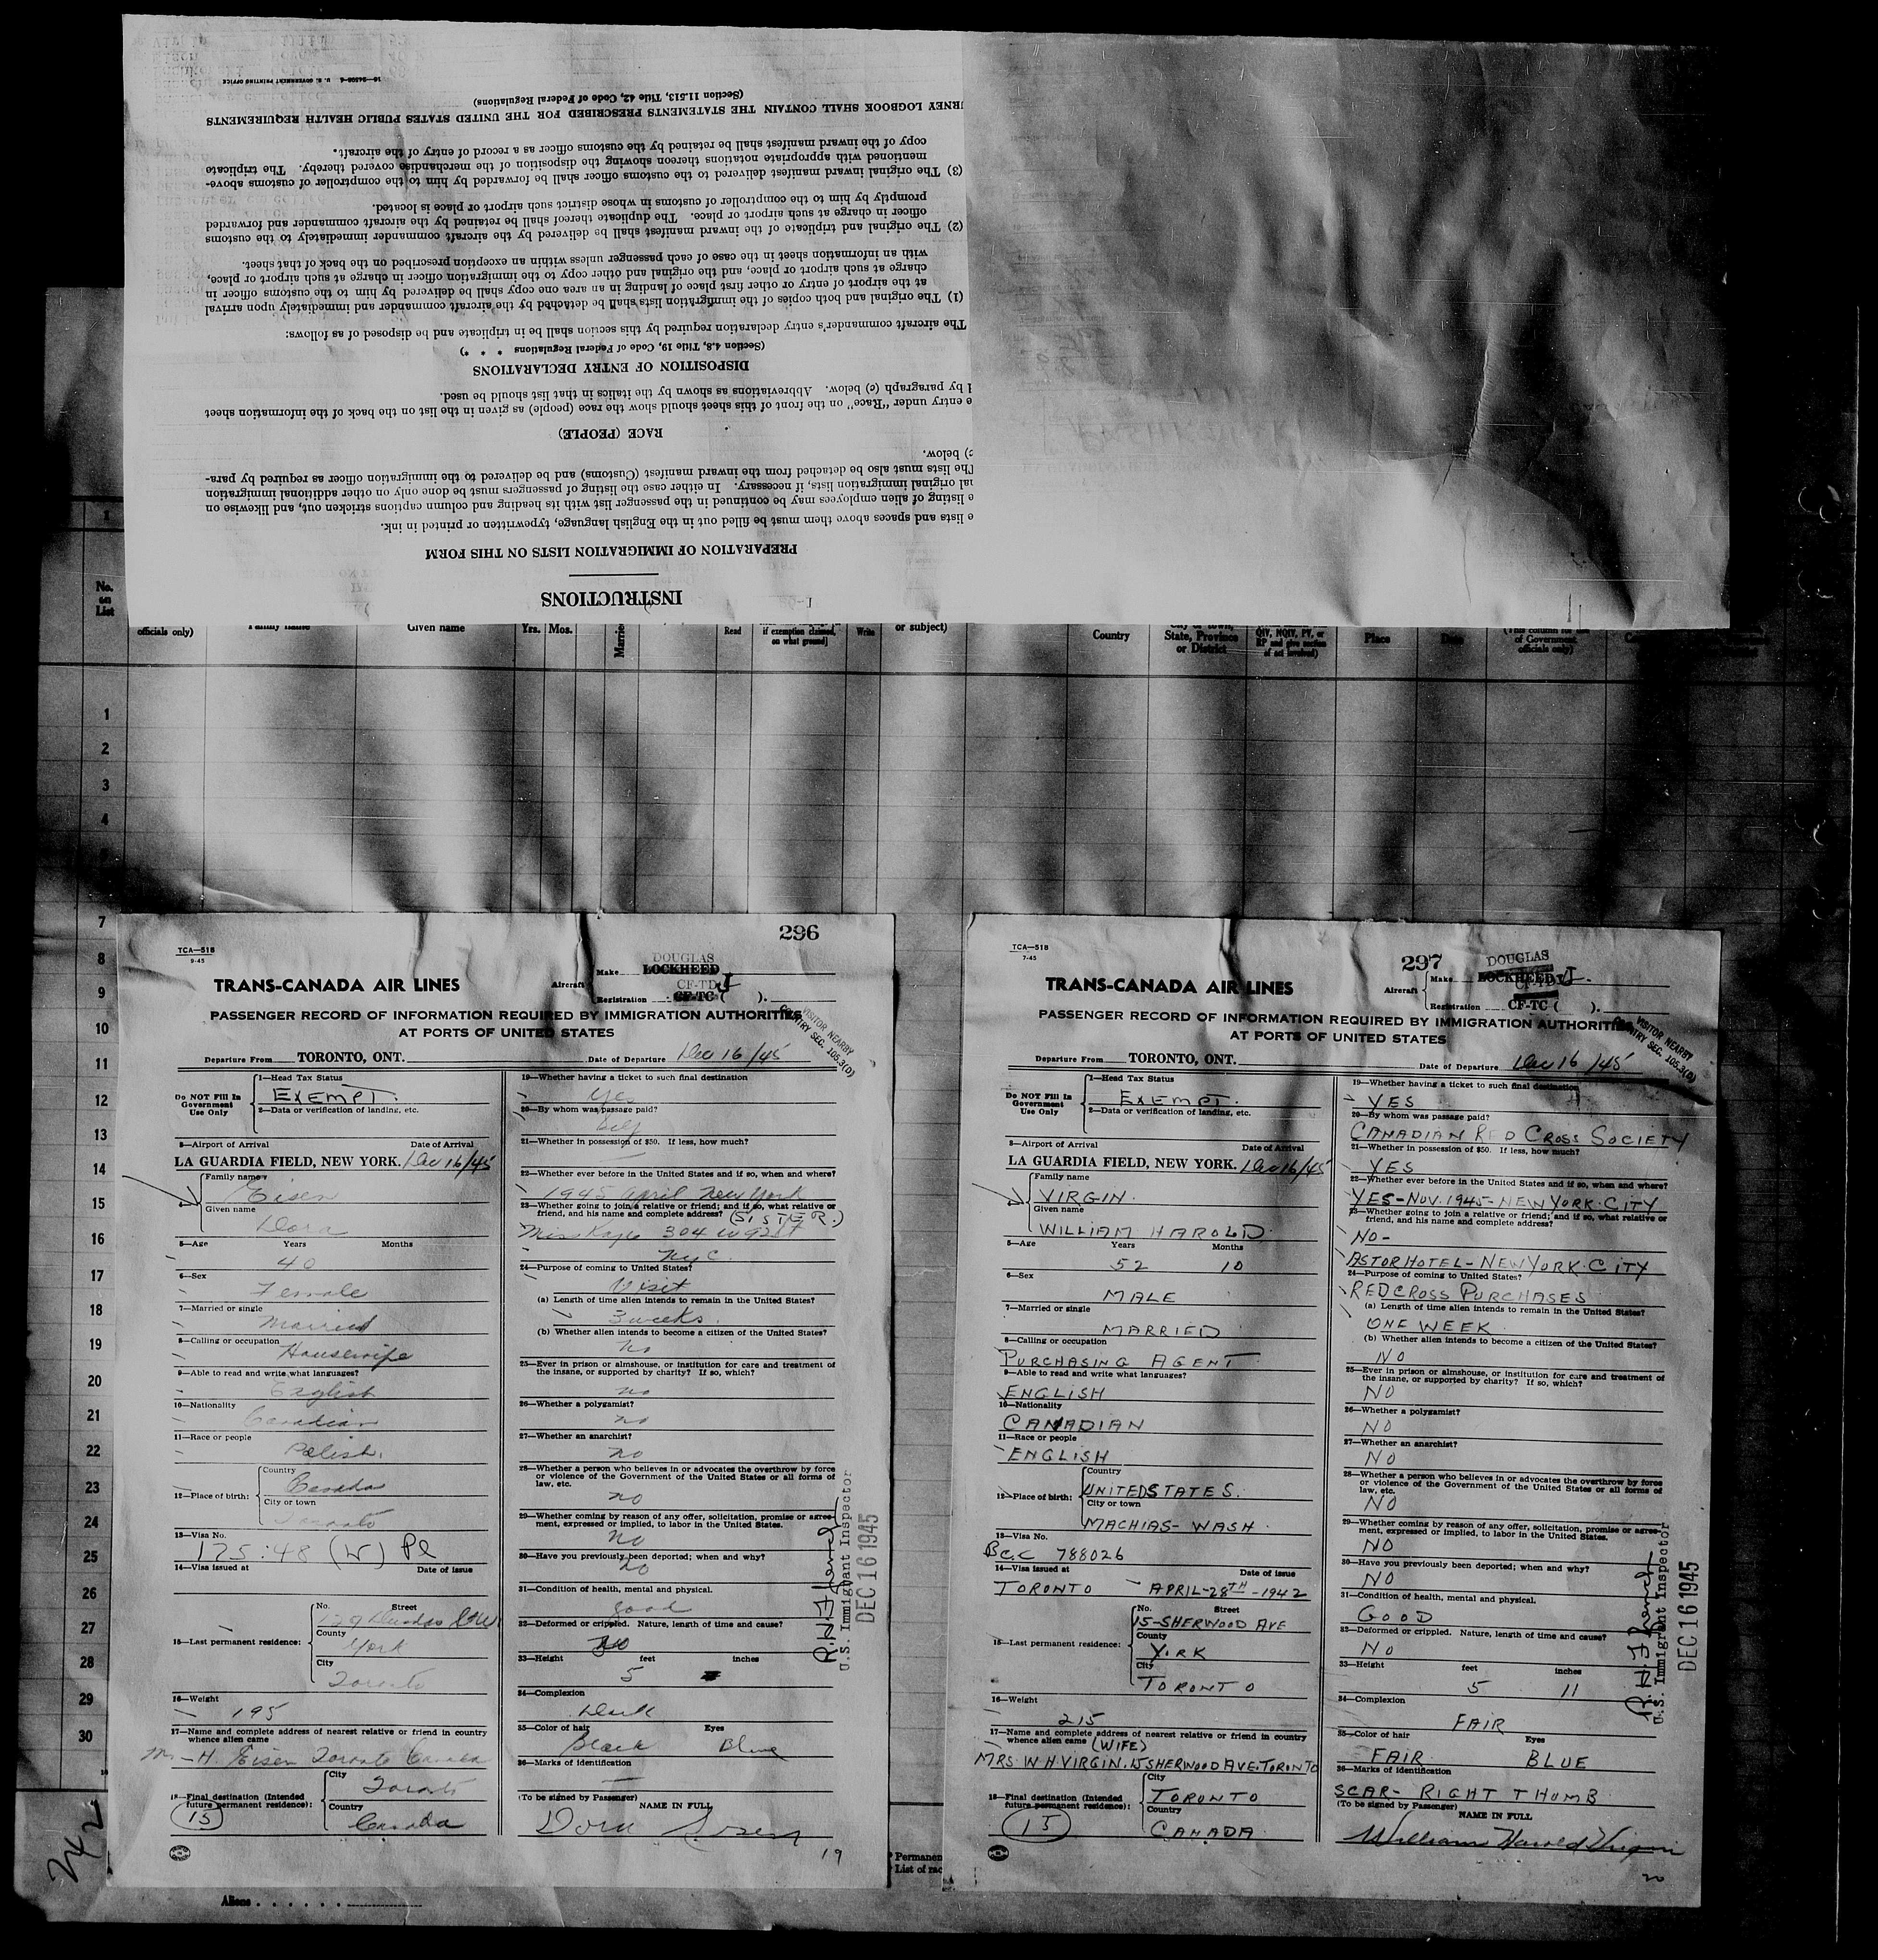 INSTRUCTIONS
PREPARATION OF IMMIGRATION LISTS ON THIS FORM
e lists and spaces above them must be filled out in the English language, typewritten or printed in ink.
e listing of alien employees may be continued in the passenger list with its heading and column captions stricken out, and likewise on
nal original immigration lists, if necessary. In either case the listing of passengers must be done only on other additional immigration
The lists must also be detached from the inward manifest (Customs) and be delivered to the immigration officer as required by para-
c) below.
RACE (PEOPLE)
e entry under "Race" on the front of this sheet should show the race (people) as given in the list on the back of the information sheet
l by paragraph (c) below. Abbreviations as shown by the italics in that list should be used.
DISPOSITION OF ENTRY DECLARATIONS
(Section 4.8, Title 19, Code of Federal Regulations * * *)
The aircraft commander's entry declaration required by this section shall be in triplicate and be disposed of as follows:
(1) The original and both copies of the immigration lists shall be detached by the aircraft commander and immediately upon arrival
at the airport of entry or other first place of landing in an area one copy shall be delivered by him to the customs officer in
charge at such airport or place, and the original and other copy to the immigration officer in charge at such airport or place,
with an information sheet in the case of each passenger unless within an exception prescribed on the back of that sheet.
(2) The original and triplicate of the inward manifest shall be delivered by the aircraft commander immediately to the customs
officer in charge at such airport or place. The duplicate thereof shall be retained by the aircraft commander and forwarded
promptly by him to the comptroller of customs in whose district such airport or place is located.
(3) The original inward manifest delivered to the customs officer shall be forwarded by him to the comptroller of customs above-
mentioned with appropriate notations thereon showing the disposition of the merchandise covered thereby. The triplicate
copy of the inward manifest shall be retained by the customs officer as a record of entry of the aircraft.
RNEY LOGBOOK SHALL CONTAIN THE STATEMENTS PRESCRIBED FOR THE UNITED STATES PUBLIC HEALTH REQUIREMENTS
(Section 11.513, Title 42, Code of Federal Regulations)
U. S. GOVERNMENT PRINTING OFFICE
1
No.
on
List
officials only)
Family name
Given name
Yrs.
Mos.
Read
if exemption claimed,
on what ground]
Write
or subject)
Country
State, Province
or District
QIV, NQIV, PV, or
RP and give section
of act involved)
Place
Date
(This column for use
of Government
officials only)
1
2
3
4
7
8
9
10
11
12
13
14
15
16
17
18
19
20
21
22
23
24
25
26
27
28
29
30
242
Aliens
Permanen
List of rac
296
TCA—518
9-45
TRANS-CANADA AIR LINES
Aircraft
Make DOUGLAS LOCKHEED
Registration CF-TD J CF-TC ( ).
PASSENGER RECORD OF INFORMATION REQUIRED BY IMMIGRATION AUTHORITIES
AT PORTS OF UNITED STATES
VISITOR NEARBY
COUNTRY SEC. 105.3(D)
Departure From TORONTO, ONT. Date of Departure Dec 16/45
Do NOT Fill In
Government
Use Only
1—Head Tax Status
EXEMPT.
2—Data or verification of landing, etc.
3—Airport of Arrival Date of Arrival
LA GUARDIA FIELD, NEW YORK. Dec 16/45
Family name
Eisen
Given name
Dora
5—Age Years Months
40
6—Sex
Female
7—Married or single
Married
8—Calling or occupation
Housewife
9—Able to read and write what languages?
English
10—Nationality
Canadian
11—Race or people
Polish.
12—Place of birth:
Country
Canada
City or town
Toronto
13—Visa No.
175.48 (W) Pl
14—Visa issued at Date of issue
15—Last permanent residence:
No. Street
129 Dundas St W
County
York
City
Toronto
16—Weight
195
17—Name and complete address of nearest relative or friend in country
whence alien came
Mr - H. Eisen Toronto Canada
18—Final destination (Intended
future permanent residence):
City
Toronto
Country
Canada
15
19—Whether having a ticket to such final destination
Yes
20—By whom was passage paid?
Self
21—Whether in possession of $50. If less, how much?
22—Whether ever before in the United States and if so, when and where?
1945 April New York
23—Whether going to join a relative or friend; and if so, what relative or
friend, and his name and complete address? (SISTER.)
Miss Kaye 304 W 92 St
NYC.
24—Purpose of coming to United States?
Visit
(a) Length of time alien intends to remain in the United States?
3 weeks.
(b) Whether alien intends to become a citizen of the United States?
No
25—Ever in prison or almshouse, or institution for care and treatment of
the insane, or supported by charity? If so, which?
no
26—Whether a polygamist?
no
27—Whether an anarchist?
no
28—Whether a person who believes in or advocates the overthrow by force
or violence of the Government of the United States or all forms of
law, etc.
no
29—Whether coming by reason of any offer, solicitation, promise or agree-
ment, expressed or implied, to labor in the United States.
No
30—Have you previously been deported; when and why?
No
31—Condition of health, mental and physical.
good
32—Deformed or crippled. Nature, length of time and cause?
No
33—Height feet inches
5
34—Complexion
Dark
35—Color of hair Eyes
Black Blue
36—Marks of identification
(To be signed by Passenger) NAME IN FULL
Dora Eisen
19
U.S. Immigrant Inspector
DEC 16 1945
297
TCA—518
7-45
TRANS-CANADA AIR LINES
Aircraft
Make DOUGLAS LOCKHEED
Registration CF-TD J. CF-TC ( ).
PASSENGER RECORD OF INFORMATION REQUIRED BY IMMIGRATION AUTHORITIES
AT PORTS OF UNITED STATES
VISITOR NEARBY
COUNTRY SEC. 105.3(D)
Departure From TORONTO, ONT. Date of Departure Dec 16/45
Do NOT Fill In
Government
Use Only
1—Head Tax Status
EXEMPT.
2—Data or verification of landing, etc.
3—Airport of Arrival Date of Arrival
LA GUARDIA FIELD, NEW YORK. Dec 16/45
Family name
VIRGIN.
Given name
WILLIAM HAROLD.
5—Age Years Months
52 10
6—Sex
MALE
7—Married or single
MARRIED
8—Calling or occupation
PURCHASING AGENT
9—Able to read and write what languages?
ENGLISH
10—Nationality
CANADIAN
11—Race or people
ENGLISH
12—Place of birth:
Country
UNITED STATES.
City or town
MACHIAS- WASH.
13—Visa No.
B.C.C 788026
14—Visa issued at Date of issue
TORONTO APRIL-28TH-1942
15—Last permanent residence:
No. Street
15-SHERWOOD AVE
County
YORK
City
TORONTO
16—Weight
215
17—Name and complete address of nearest relative or friend in country
whence alien came (WIFE)
MRS. W.H. VIRGIN. 15 SHERWOOD AVE. TORONTO
18—Final destination (Intended
future permanent residence):
City
TORONTO
Country
CANADA.
15
19—Whether having a ticket to such final destination
YES
20—By whom was passage paid?
CANADIAN RED CROSS SOCIETY
21—Whether in possession of $50. If less, how much?
YES
22—Whether ever before in the United States and if so, when and where?
YES-NOV. 1945-NEW YORK-CITY
23—Whether going to join a relative or friend; and if so, what relative or
friend, and his name and complete address?
NO-
ASTOR HOTEL-NEW YORK-CITY
24—Purpose of coming to United States?
RED CROSS PURCHASES
(a) Length of time alien intends to remain in the United States?
ONE WEEK
(b) Whether alien intends to become a citizen of the United States?
NO
25—Ever in prison or almshouse, or institution for care and treatment of
the insane, or supported by charity? If so, which?
NO
26—Whether a polygamist?
NO
27—Whether an anarchist?
NO
28—Whether a person who believes in or advocates the overthrow by force
or violence of the Government of the United States or all forms of
law, etc.
NO
29—Whether coming by reason of any offer, solicitation, promise or agree-
ment, expressed or implied, to labor in the United States.
NO
30—Have you previously been deported; when and why?
NO
31—Condition of health, mental and physical.
GOOD
32—Deformed or crippled. Nature, length of time and cause?
NO
33—Height feet inches
5 11
34—Complexion
FAIR
35—Color of hair Eyes
FAIR BLUE
36—Marks of identification
SCAR- RIGHT THUMB
(To be signed by Passenger) NAME IN FULL
William Harold Virgin
20
U.S. Immigrant Inspector
DEC 16 1945